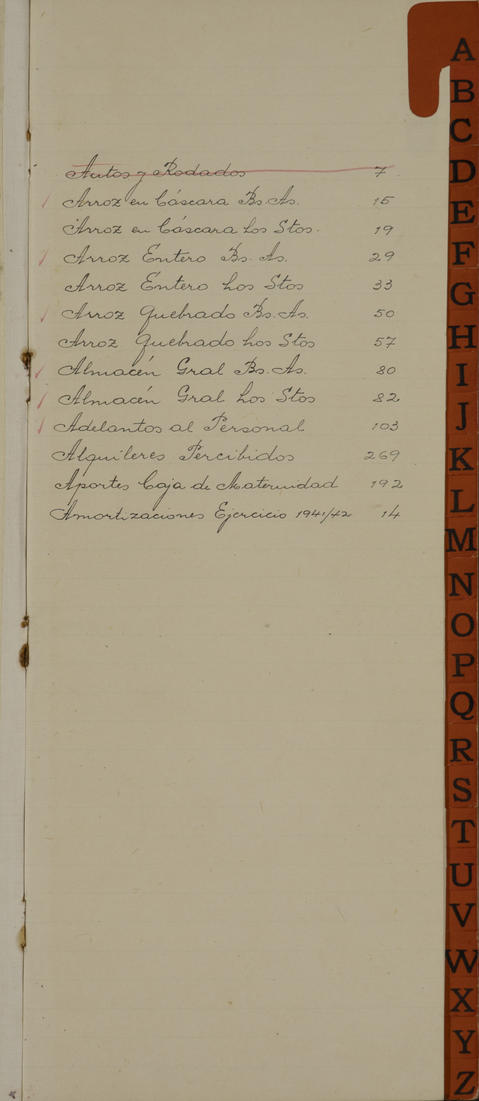 Autos y Rodados 7
Arroz en Cáscara Bs. As. 15
Arroz en Cáscara Los Stos. 19
Arroz Entero Bs. As. 29
Arroz Entero Los Stos 33
Arroz Quebrado Bs. As. 50
Arroz Quebrado Los Stos 57
Almacén Gral Bs. As. 80
Almacén Gral Los Stos 82
Adelantos al Personal 103
Alquileres Percibidos 269
Aportes Caja de Maternidad 192
Amortizaciones Ejercicio 1941/42 14
A
B
C
D
E
F
G
H
I
J
K
L
M
N
O
P
Q
R
S
T
U
V
W
X
Y
Z